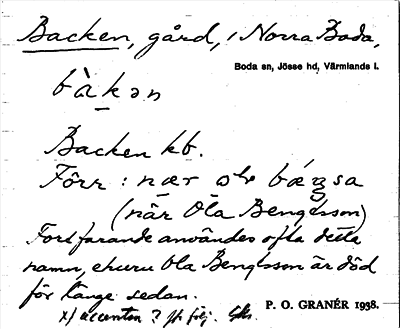 Backen, gård, i Norra Boda,
Boda sn, Jösse hd, Värmlands l.
bàkən
Backen kb.
Förr: nær ola bæŋsa
(när Ola Bengtsson)
Fortfarande användes ofta detta
namn, ehuru Ola Bengtsson är död
för länge sedan.
P. O. GRANÉR 1938.
x/ accenten ? jfr följ.